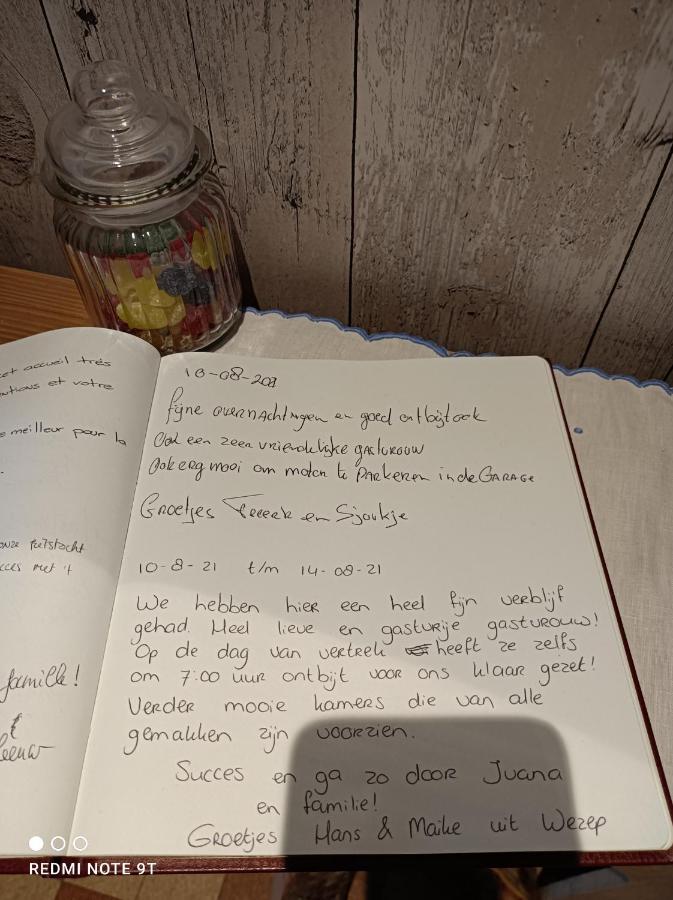 et accueil très
ations et votre
meilleur pour la
onze fietstocht
cces met 't
famille!
Leeuw
10-08-2021
fijne overnachtingen en goed ontbijt ook
Ook een zeer vriendelijke gastvrouw
Ook erg mooi om moten te Parkeren in de GARAGE
Groetjes en Sjoukje
10-8-21 t/m 14-08-21
We hebben hier een heel fijn verblijf
gehad. Heel lieve en gastvrije gastvrouw!
Op de dag van vertrek heeft ze zelfs
om 7:00 uur ontbijt voor ons klaar gezet!
Verder mooie kamers die van alle
gemakken zijn voorzien.
Succes en ga zo door Juana
en familie!
Groetjes Hans & Maike uit Wezep
REDMI NOTE 9T